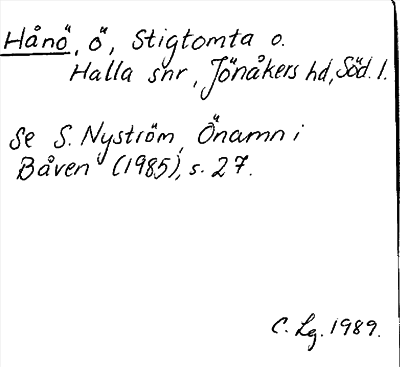 Hånö, ö, Stigtomta o.
Halla snr, Jönåkers hd, Söd. l.
Se S. Nyström, Önamn i
Båven (1985), s. 27.
C. Lg. 1989.